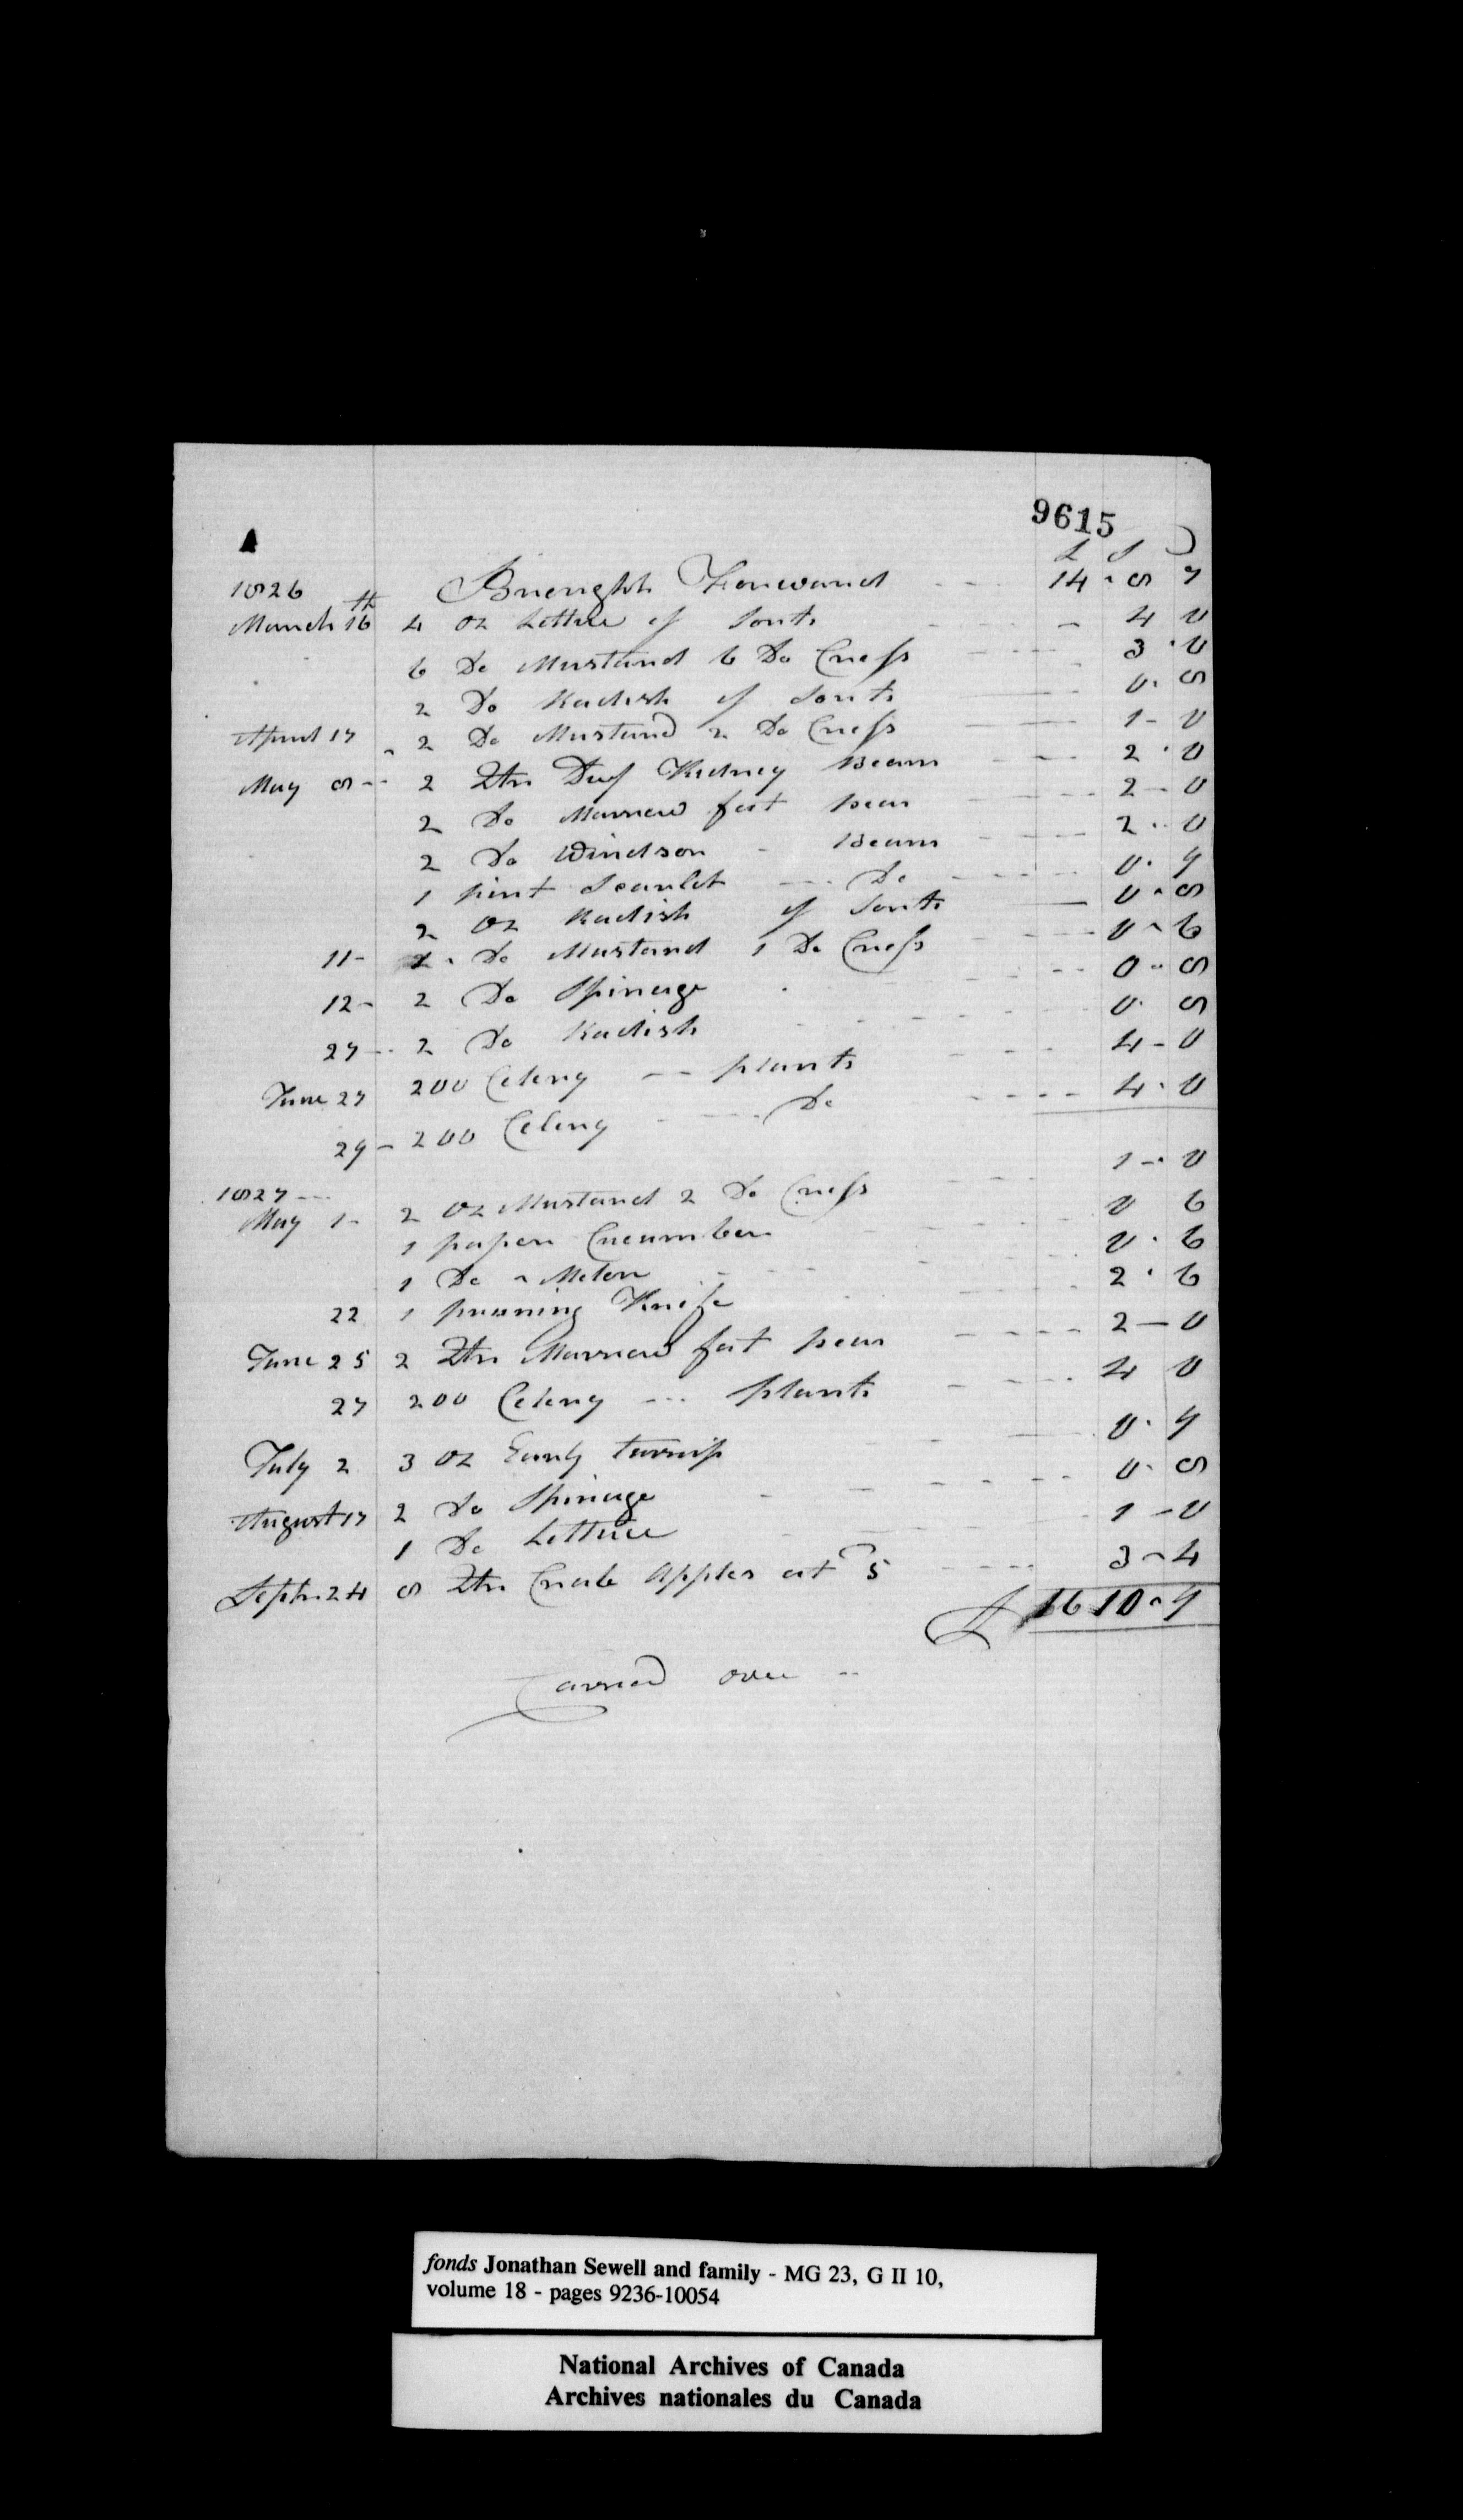 9615
L S D
1826 Brought Forward 14 - 8 7
March 16th 4 oz Lettuce of sorts 4 0
6 Do Mustard 6 Do Cress 3 - 0
2 Do Radish of sorts 0 - 8
April 17 2 Do Mustard 2 Do Cress 1 - 0
May 8 2 Qtn Dwf Kidney Beans 2 - 0
2 Do Marrow fat peas 2 - 0
2 Do Windsor - Beans 2 - 0
1 pint Scarlet Do 0 - 9
2 oz Radish of sorts 0 - 8
11 - 1 - Do Mustard 1 Do Cress 0 - 6
12 - 2 Do Spinage 0 - 8
27 - 2 Do Radish 0 - 8
June 27 200 Celery -- plants 4 - 0
29 - 200 Celery Do 4 - 0
1827
May 1 - 2 oz Mustard 2 Do Cress 1 - 0
1 paper Cucumber 0 6
1 Do - Melon 0 - 6
22 1 pruning Knife 2 - 6
June 25 2 Qtn Marrow fat peas 2 - 0
27 200 Celery --- plants 4 0
July 2 3 oz Early turnip 0 - 9
August 17 2 Do Spinage 0 - 8
1 Do Lettuce 1 - 0
Septr. 24 8 Qtn Crab Apples at 5 3 - 4
£ 16 10 - 9
Carried over --
fonds Jonathan Sewell and family - MG 23, G II 10,
volume 18 - pages 9236-10054
National Archives of Canada
Archives nationales du Canada